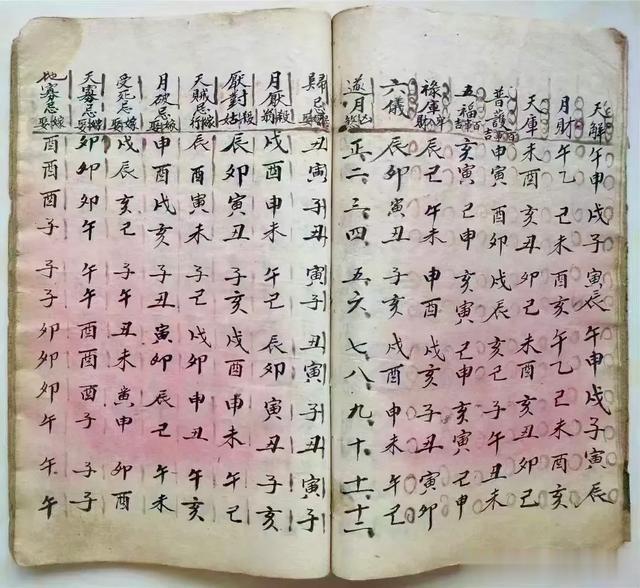 天解午申戌子寅辰午申戌子寅辰
月財午乙己未酉亥午乙己未酉亥
天庫未酉亥丑卯己未酉亥丑卯己
普護申寅酉卯戌辰亥己子午丑未
五福亥寅己申亥寅己申亥寅己申
祿庫辰己午未申酉戌亥子丑寅卯
六儀辰卯寅丑子亥戌酉申未午己
逐月正二三四五六七八九十十一十二
歸忌丑寅子丑寅子丑寅子丑寅子
月厭戌酉申未午己辰卯寅丑子亥
厭對辰卯寅丑子亥戌酉申未午己
天賊忌行嫁辰酉寅未子己戌卯申丑午亥
月破忌申酉戌亥子丑寅卯辰己午未
受死忌嫁娶戌辰亥己子午丑未寅申卯酉
天寡忌嫁娶卯卯卯午午午酉酉酉子子子
地寡忌嫁娶酉酉酉子子子卯卯卯午午午